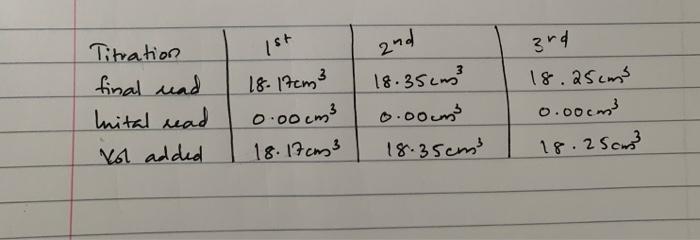 Titration 1st 2nd 3rd
final read 18.17cm³ 18.35cm³ 18.25cm³
Inital read 0.00cm³ 0.00cm³ 0.00cm³
Vol added 18.17cm³ 18.35cm³ 18.25cm³